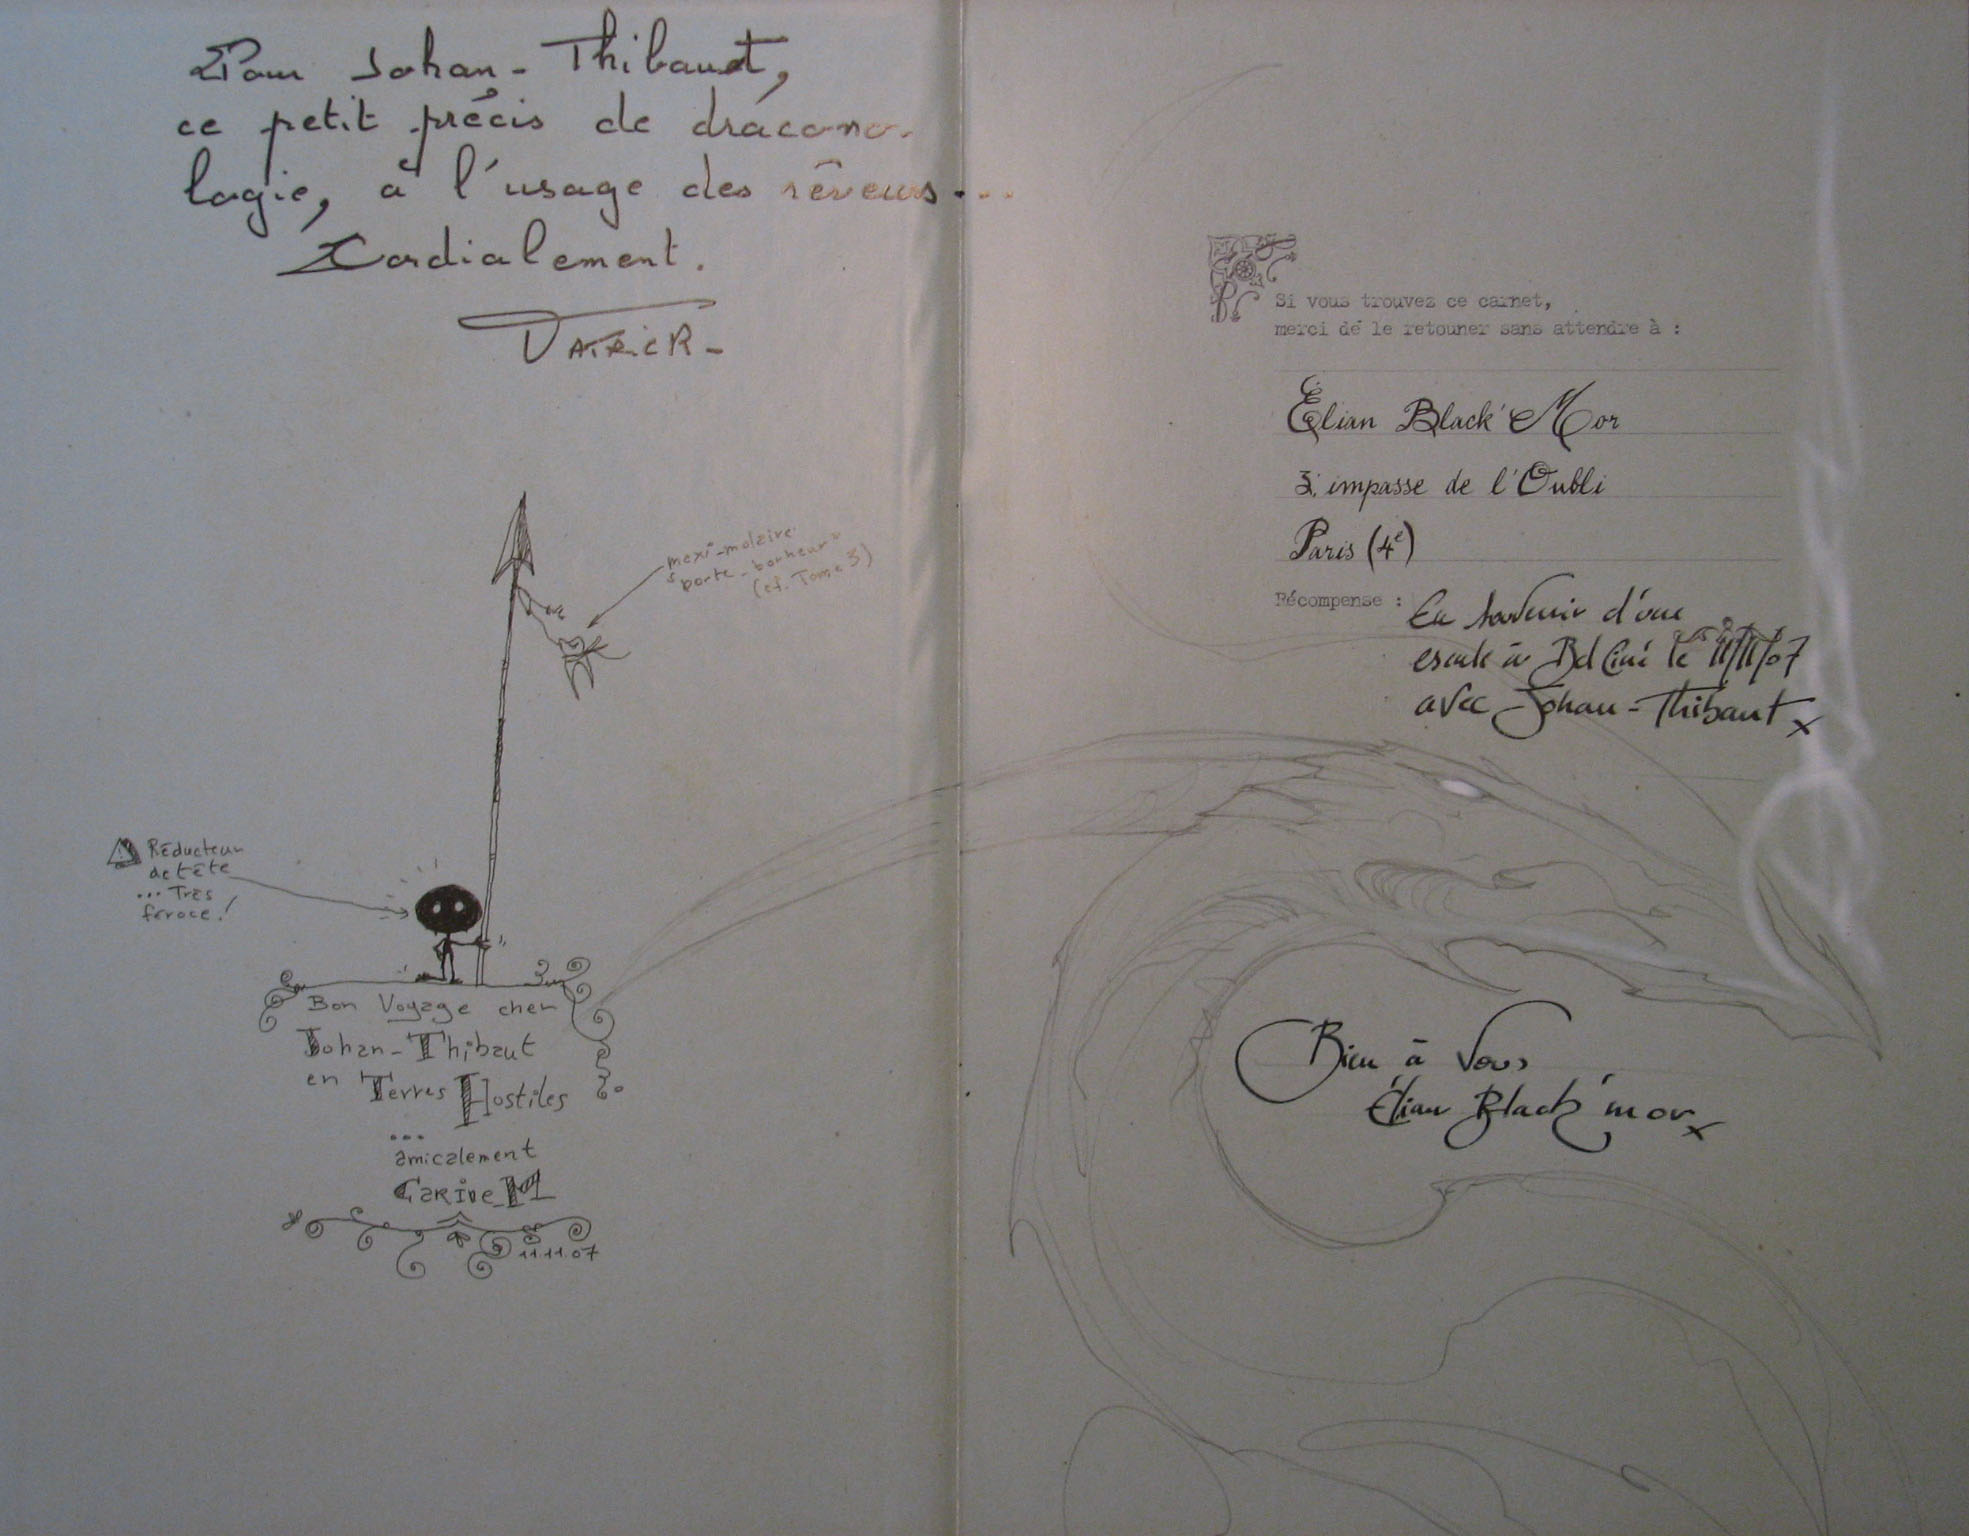 Pour Johan-Thibaut,
ce petit précis de dracono-
logie, à l'usage des rêveurs...
Cordialement.
Patrick -
maxi-molaire
"porte-bonheur"
(cf. Tome 3)
Réducteur
de tête
... Très
féroce!
Bon Voyage cher
Johan-Thibaut
en Terres Hostiles
...
amicalement
Carine M
11.11.07
Si vous trouvez ce carnet,
merci de le retouner sans attendre à :
Élian Black'Mor
3, impasse de l'Oubli
Paris (4e)
Récompense : En souvenir d'une
escale à Bd Ciné le 11/11/07
avec Johan-Thibaut
Bien à Vous
Élian Black'mor